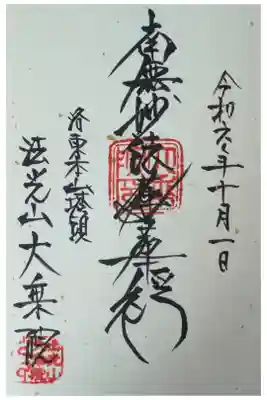 令和六年十月一日
南無妙法蓮華経
洛東本山塔頭
法光山大乗院